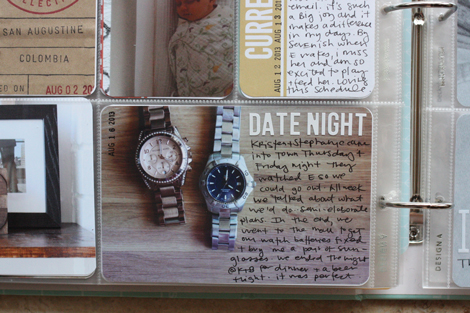 SAN AUGUSTINE
COLOMBIA
AUG 0 2 20
CURRE
AUG 13 2013
AUG 12 2013
email. it's such
a big joy and it
makes a difference
in my day. By
Sevenish when
E wakes, i miss
her and am so
excited to play
+ feed her. Loving
this schedule!
AUG 16 2013
DATE NIGHT
Kristen + Stephanye came
into town Thursday +
Friday night. They
watched E so we
could go out. All week
we talked about what
we'd do - semi-elaborate
plans. In the end, we
went to the mall to get
our watch batteries fixed
+ buy me a pair of sun
glasses. we ended the night
for dinner + a beer
flight. it was perfect.
DESIGN A